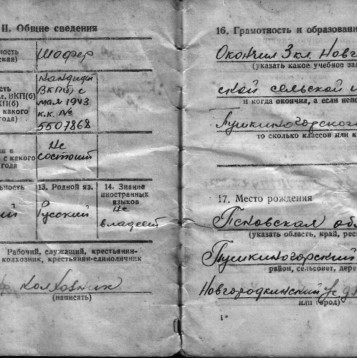 II. Общие сведения
ность
Шофер
Кандидат
ВКП(б) с
мая 1943
к.к. №
5507868
Не
состоит
с какого
года
13. Родной яз.
14. Знание
иностранных
языков
Русский
Не
владеет
Рабочий, служащий, крестьянин-
колхозник, крестьянин-единоличник
Колхозник
(написать)
16. Грамотность и образован
Окончил 3 кл. Новг
(указать какое учебное за
ской сельской
и когда окончил, а если не
Пушкиногорского
то сколько классов или к
17. Место рождения
Псковская об
(указать область, край, рес
Пушкиногорский
район, сельсовет, дере
Новгородкинский с/с д
или город)
1*